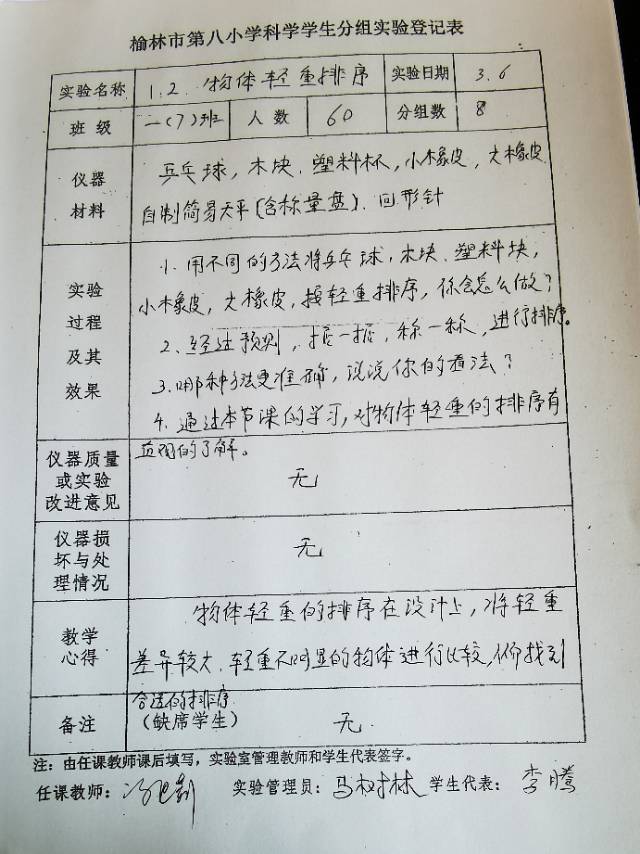 榆林市第八小学科学学生分组实验登记表
实验名称 1.2 物体轻重排序 实验日期 3.6
班级 一(7)班 人数 60 分组数 8
仪器材料
乒乓球，木块、塑料杯，小橡皮，大橡皮
自制简易天平(含称量盘)、回形针
实验过程及其效果
1. 用不同的方法将乒乓球，木块、塑料块，
小橡皮，大橡皮，按轻重排序，你会怎么做？
2、经过预测，掂一掂，称一称，进行排序。
3. 哪种方法更准确，说说你的看法？
4. 通过本节课的学习，对物体轻重的排序有
的了解。
仪器质量或实验改进意见
无
仪器损坏与处理情况
无
教学心得
物体轻重的排序在设计上，将轻重
差异较大、轻重不明显的物体进行比较，找到
合适的排序
备注 (缺席学生) 无
注：由任课教师课后填写，实验室管理教师和学生代表签字。
任课教师： 实验管理员：马树林 学生代表：李腾